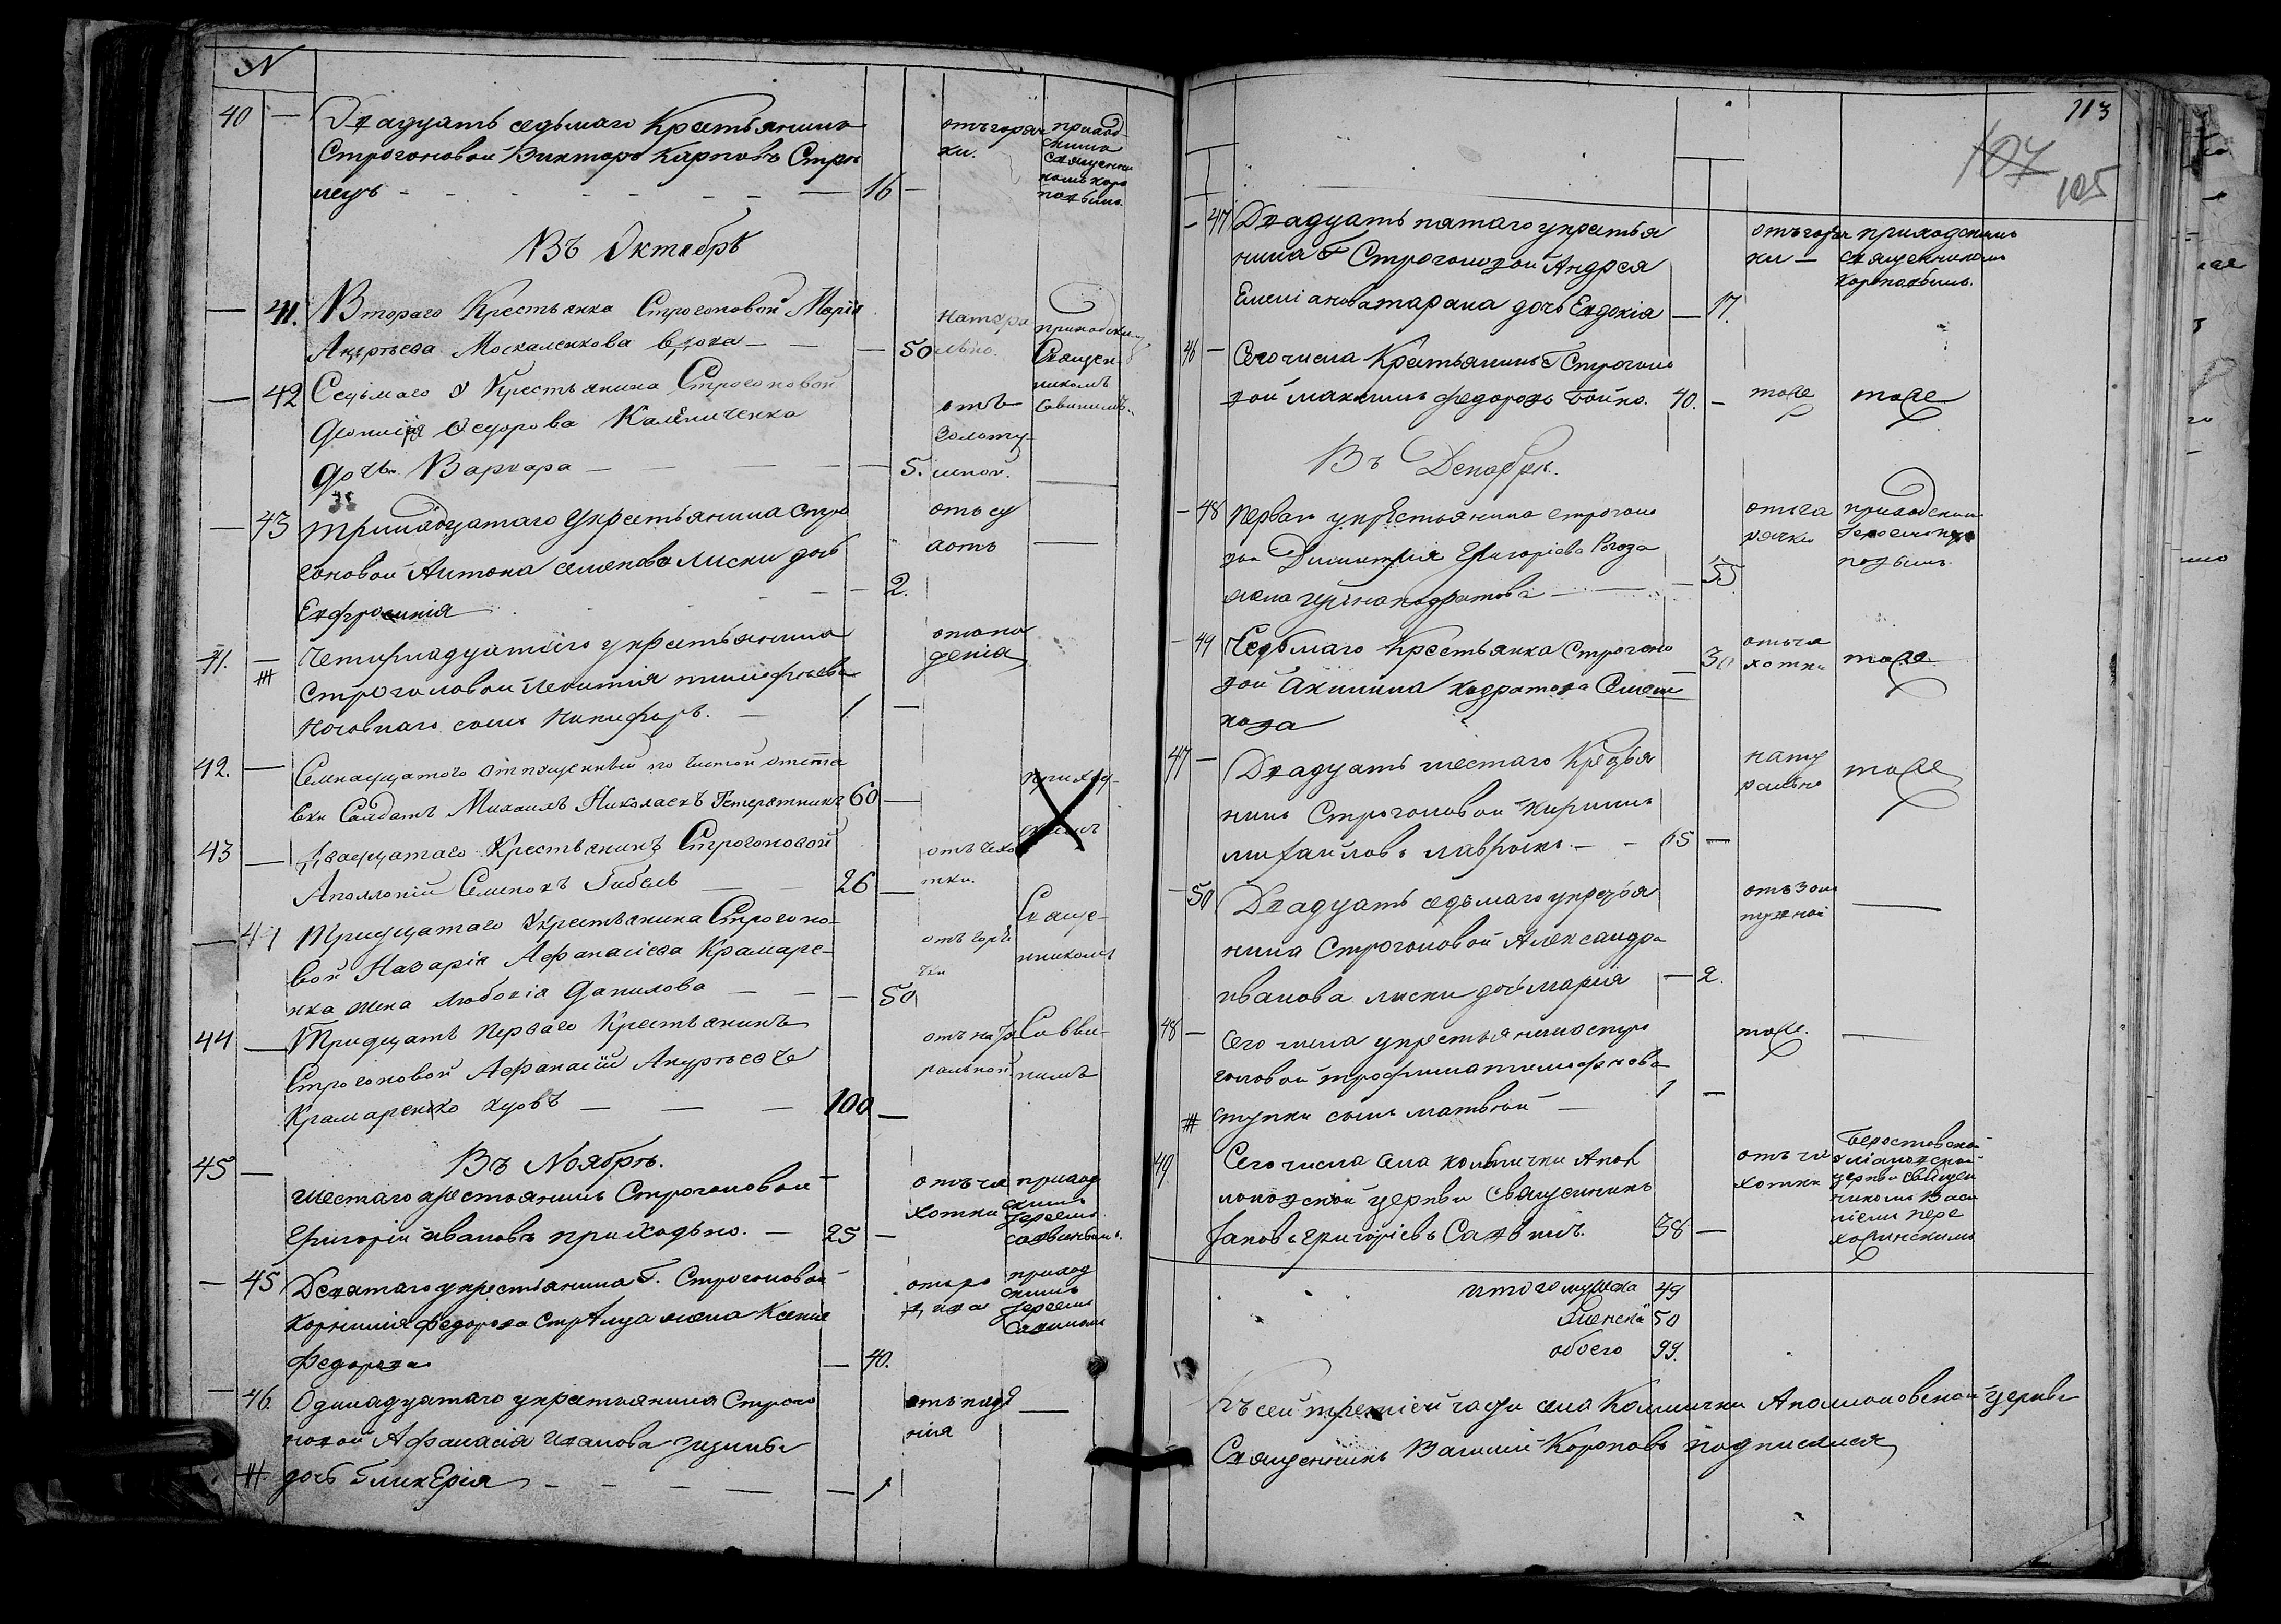 N
40 — Двадцать седьмаго Крестьянинъ
Строгоновой Викторъ Карповъ Стрѣ
лецъ — 16 —
отъ горяч
ки.
приход
скимъ
священни
комъ Коро
повымъ.
Въ Октябрѣ
— 41. Втораго Крестьянка Строгоновой Марія
Андрѣева Москаленкова вдова — — 50
натура
льно.
приходским
Священ
никомъ
Савинимъ.
— 42 Седьмаго У Крестьянина Строгоновой
Леонтія Федорова Калениченка
дочь Варвара — — 5.
отъ
золоту
шной.
— 43 тринадцатаго укрестьянина Стро
гоновой Антона Семенова Лиски дочь
Евфросинія — 2.
отъ су
дотъ —
41. — Четырнадцатаго укрестьянина
Строгоновой Леонтія тимофѣева
Ноговнаго сынъ Никифоръ. — 1 —
отъ па
денія
42. — Семнадцатого отпущенный по чистой отста
вки Салдатъ Михаилъ Николаевъ 60 —
приход
скимъ
43 — Двадцатаго Крестьянинъ Строгоновой
Аполлоній Семеновъ Гибель — 26 —
отъ чахо
тки.
— 44 Тридцатаго Укрестьянина Строгоно-
вой Назарія Афанасіева Крамаре-
нка жена Любовія Данилова — — 50
отъ горя
чки
Свяще-
нникомъ
44 — Тридцать Перваго Крестьянинъ
Строгоновой Афанасій Андрѣевъ
Крамаренко вдовъ — — — 100 —
отъ нату
ральной
Савви-
нимъ
Въ Ноябрѣ.
45 — шестаго крестьянинъ Строгоновой
Григорій Ивановъ приходько. — 25 —
отъ ча
хотки
приход
скимъ
Іереемъ
Саввинымъ.
— 45 Девятаго укрестьянина Г. Строгоновой
Корнилія Федорова Стрѣлца жена Ксенія
Федорова — 40.
отъ ро
дива
приход
скимъ
Іереемъ
Савинимъ
— 46. Одинадцатаго укрестьянина Строго
новой Афанасія Иванова
дочь Гликерія — — 1
отъ паде
нія —
113
107
105
— 47 Двадцать пятаго укрестья
нина Г Строгоновой Андрея
Емеліанова тарана дочь Евдокія — 17.
отъ горяч
ки —
приходскимъ
священникомъ
Короповымъ.
46 — Сего числа Крестьянинъ Г Строгоно
вой Максимъ Федоровъ Бойко. 40. —
тоже тоже
Въ Декабрѣ.
— 48 перваго укрестьянина строгоно
вой Димитрія Григоріева Рогоза
жена Ирина кодратова — 55.
отъ га
рячки
приходским
Іереемъ Коро
повымъ.
— 49 Седьмаго Крестьянка Строгоно
вой Акилина Кодратова Семен
кова 30
отъ ча
хотки
тоже
47 — Двадцать шестаго Крестья
нинъ Строгоновой Кирилъ
михайловъ лавренко. — — 65 —
нату
рально
тоже
— 50 Двадцать седьмаго укрестья
нина Строгоновой Александра
иванова лиски дочь марія — 2.
отъ золо
тушной —
48 — Сего числа укрестьянина стро
гоновой трофима тимофѣева
ступки сынъ матвѣй — 1 —
тоже. —
49. Сего числа села колпички Апол
лоновской церкви Священникъ
Іаковъ Григоріевъ Саввинъ. 38 —
отъ ча
хотки
Берестовской
церкви Священ
никомъ Васи
ліемъ Пере
итого мужеска 49
женска 50
обоего 99.
Къ сей третіей части села Колпички Аполлоновской церкви
Священникъ Василій Короповъ подписался